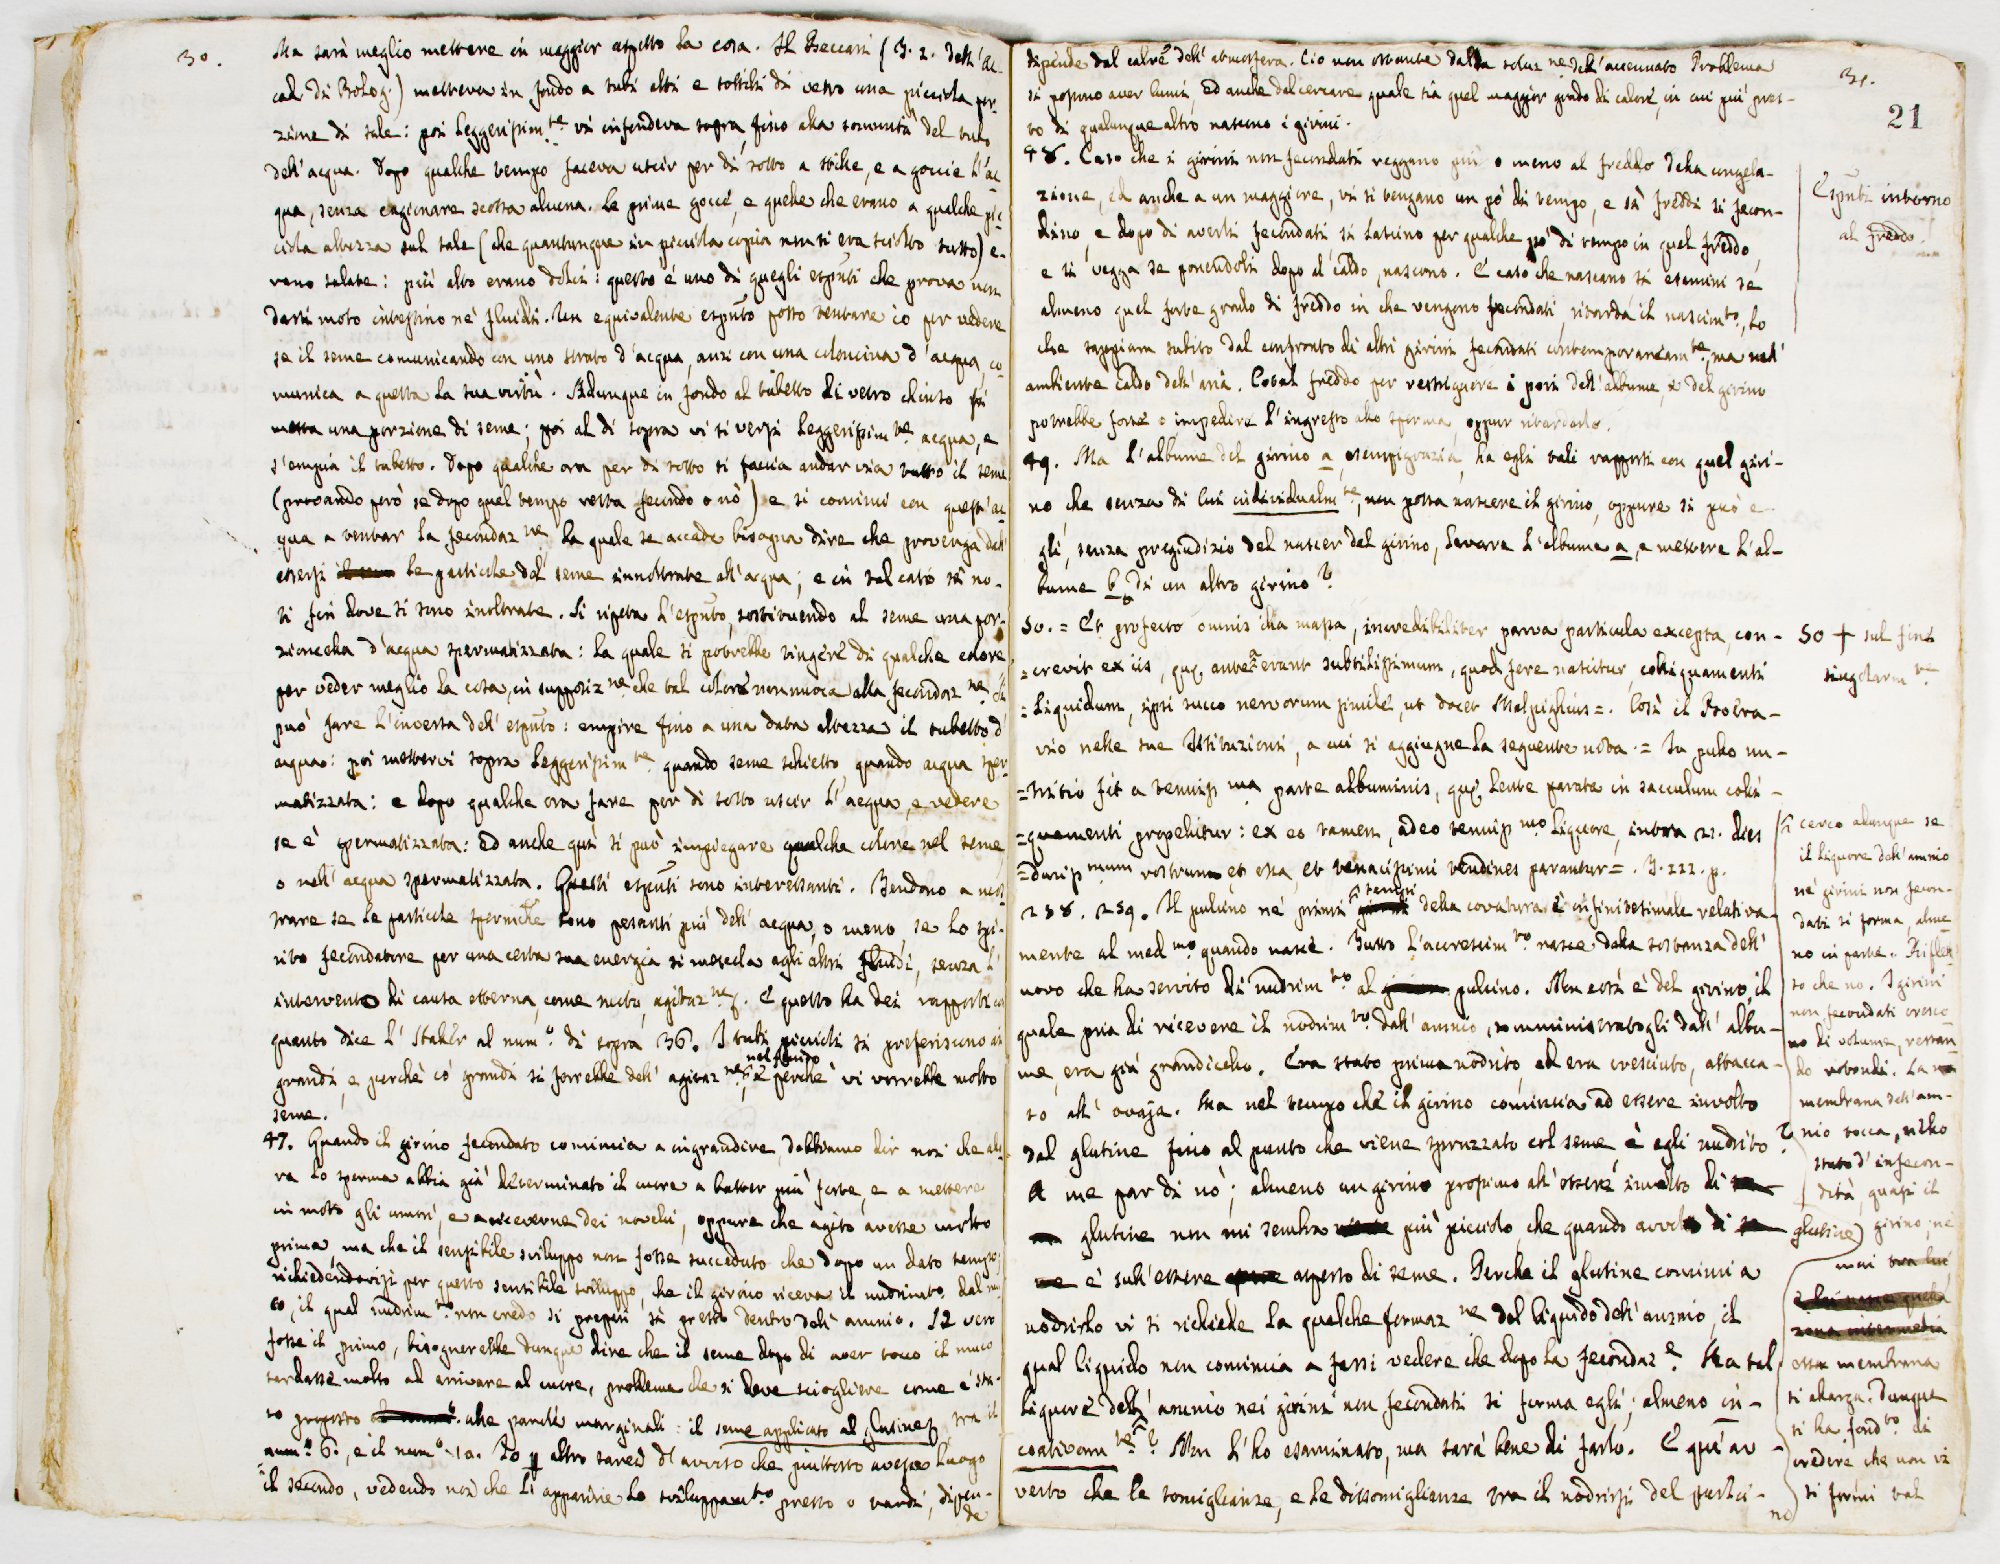 30.
Ma sarà meglio mettere in maggior aspetto la cosa. Il Beccari (T. 2. dell'Ac-
cad. di Bolog.) metteva in fondo a tubi alti e sottili di vetro una picciola por-
zione di sale: poi leggerissim.te vi infondeva sopra, fino alla sommità del tubo
dell'acqua. Dopo qualche tempo faceva uscir per di sotto a stille, e a goccie l'ac-
qua, senza cagionare scossa alcuna. Le prime goccie, e quelle che erano a qualche pic-
ciola altezza sul sale (che quantunque in picciola copia non si era sciolto tutto) e-
rano salate: più alto erano dolci: questo è uno di quegli esp.ti che prova non
darsi moto intestino ne' fluidi. Un equivalente esp.to posso tentare io per vedere
se il seme comunicando con uno strato d'acqua, anzi con una coloncina d'acqua, co-
munica a questa la sua virtù. Adunque in fondo al tubetto di vetro chiuso si
metta una porzione di seme; poi al di sopra vi si versi leggerissim.te acqua, e
s'empia il tubetto. Dopo qualche ora per di sotto si faccia andar via tutto il seme
(provando però se dopo quel tempo resta fecondo o nò) e si cominci con quest'ac-
qua a tentar la fecondaz.ne la quale se accade bisogna dire che provenga dall'
essersi le particole del seme innoltrate all'acqua; e in tal caso si no-
ti fin dove si sono inoltrate. Si ripeta l'esp.to, sostituendo al seme una por-
zioncella d'acqua spermatizzata: la quale si potrebbe tingere di qualche colore
per veder meglio la cosa, in supposiz.ne che tal colore non nuoca alla fecondaz.ne. Si
può fare l'inversa dell'esp.to: empire fino a una data altezza il tubetto d'
acqua: poi mettervi sopra leggerissim.te quando seme schietto, quando acqua sper-
matizzata: e dopo qualche ora fare per di sotto uscir l'acqua, e vedere
se è spermatizzata: ed anche quì si può impiegare qualche colore nel seme,
o nell'acqua spermatizzata. Questi esp.ti sono interessanti. Tendono a mos-
trare se le particole spermatiche sono pesanti più dell'acqua, o meno, se lo spi-
rito fecondatore per una certa sua energia si mescola agli altri fluidi, senza l'
intervento di causa esterna, come moto, agitaz.ne &. E questo ha dei rapporti con
quanto dice l'Haller al num.o di sopra 36. I tubi piccioli si preferiscono ai
grandi, e perchè co' grandi si farebbe dell'agitaz.ne nel fluido, e perchè vi vorrebbe molto
seme.
47. Quando il girino fecondato comincia a ingrandire, dobbiamo dir noi che allo-
ra lo sperma abbia già determinato il cuore a batter più forte, e a mettere
in moto gli umori, e a riceverne dei novelli, oppure che agito avesse molto
prima, ma che il sensibile sviluppo non fosse succeduto che dopo un dato tempo,
richiedendovisi per questo sensibile sviluppo, che il girino riceva il nudrimento dal
co, il qual nudrim.to non credo si prepari sì presto dentro dell'amnio. Se vero
fosse il primo, bisognerebbe dunque dire che il seme dopo di aver tocco il muco
tardasse molto ad arrivare al cuore, problema che si deve sciogliere come è sta-
to proposto alle parole marginali: il seme applicato al glutine, tra il
num.o 6., e il num.o 10. Io p altro sarei d'avviso che piuttosto avesse luogo
il secondo, vedendo noi che l'apparire lo sviluppam.to presto o tardi, dipen-
de
31.
21
dipende dal calore dell'atmosfera. Ciò non ostante dalla soluz.ne dell'accennato Problema
si possono aver lumi, ed anche dal cercare quale sia quel maggior grado di calore, in cui più pres-
to di qualunque altro nascono i girini.
48. Caso che i girini non fecondati reggano più o meno al freddo della congela-
zione, ed anche a un maggiore, vi si tengano un pò di tempo, e sì freddi si fecon-
dino, e dopo di averli fecondati si lascino per qualche pò di tempo in quel freddo,
e si vegga se ponendoli dopo al caldo, nascono. E caso che nascano si esamini se
almeno quel forte grado di freddo in che vengono fecondati, ritarda il nascim.to, lo
che sappiam subito dal confronto di altri girini fecondati contemporaneam.te, ma nell'
ambiente caldo dell'aria. Cotal freddo per restrignere i pori dell'albume, e del girino
potrebbe forse o impedire l'ingresso allo sperma, oppur ritardarlo.
Esp.ti intorno
al freddo.
49. Ma l'albume del girino a, esempigrazia, ha egli tali rapporti con quel giri-
no che senza di lui individualm.te, non possa nascere il girino, oppure si può e-
gli, senza pregiudizio del nascer del girino, levare l'albume a, e mettere l'al-
bume b di un altro girino?
50. = Et profecto omnis illa massa, incredibiliter parva particula excepta, con-
= crevit ex iis, quæ ante erant subtilissimum, quod fere nascitur, colliquamenti
= liquidum, ipsi succo nervorum simile, ut docet Malpighius =. Così il Boera-
vio nelle sue Istituzioni, a cui si aggiugne la seguente nota. = In pullo nu-
= tritio fit a tenuiss.ma parte albuminis, quæ lente parata in sacculum colli-
= quamenti propellitur: ex eo tamen, adeo tenuiss.mo liquore, intra 21. dies
= duriss.mum rostrum et ossa, et tenacissimi tendines parantur =. T. III. p.
238. 239. Il pulcino ne' primi tempi della covatura è infinitesimale relativa-
mente al med.mo quando nasce. Tutto l'accrescim.to nasce dalla sostanza dell'
uovo che ha servito di nudrim.to al pulcino. Non così è del girino, il
quale pria di ricevere il nodrim.to dall'amnio, somministratogli dall'albu-
me, era già grandicello. Era stato prima nodrito, ed era cresciuto, attacca-
to all'ovaja. Ma nel tempo che il girino comincia ad essere involto
dal glutine fino al punto che viene spruzzato col seme, è egli nudrito?
A me par di nò; almeno un girino prossimo all'essere involto di
glutine non mi sembra più picciolo, che quando avvolto di
è sull'essere asperso di seme. Perchè il glutine cominci a
nodrirlo vi si richiede la qualche formaz.ne del liquido dell'amnio, il
qual liquido non comincia a farsi vedere che dopo la fecondaz.e. Ma tal
liquore dell'amnio nei girini non fecondati si forma egli, almeno in-
coativam.te? Non l'ho esaminato, ma sarà bene di farlo. E quì av-
verto che le somiglianze, e le dissomiglianze tra il nodrirsi del pulci-
no
50 + sul fine
singolarm.te
Si cerca adunque se
il liquore dell'amnio
ne' girini non fecon-
dati si forma, alme-
no in parte. Rifles-
so che no. I girini
non fecondati cresco-
no di volume, restan-
do rotondi. La
membrana dell'am-
nio tocca, nello
stato d'infecon-
dità, quasi il
glutine) girino, nè
mai
essa membrana
si alarga. Dunque
si ha fond.to di
credere che non vi
si formi tal